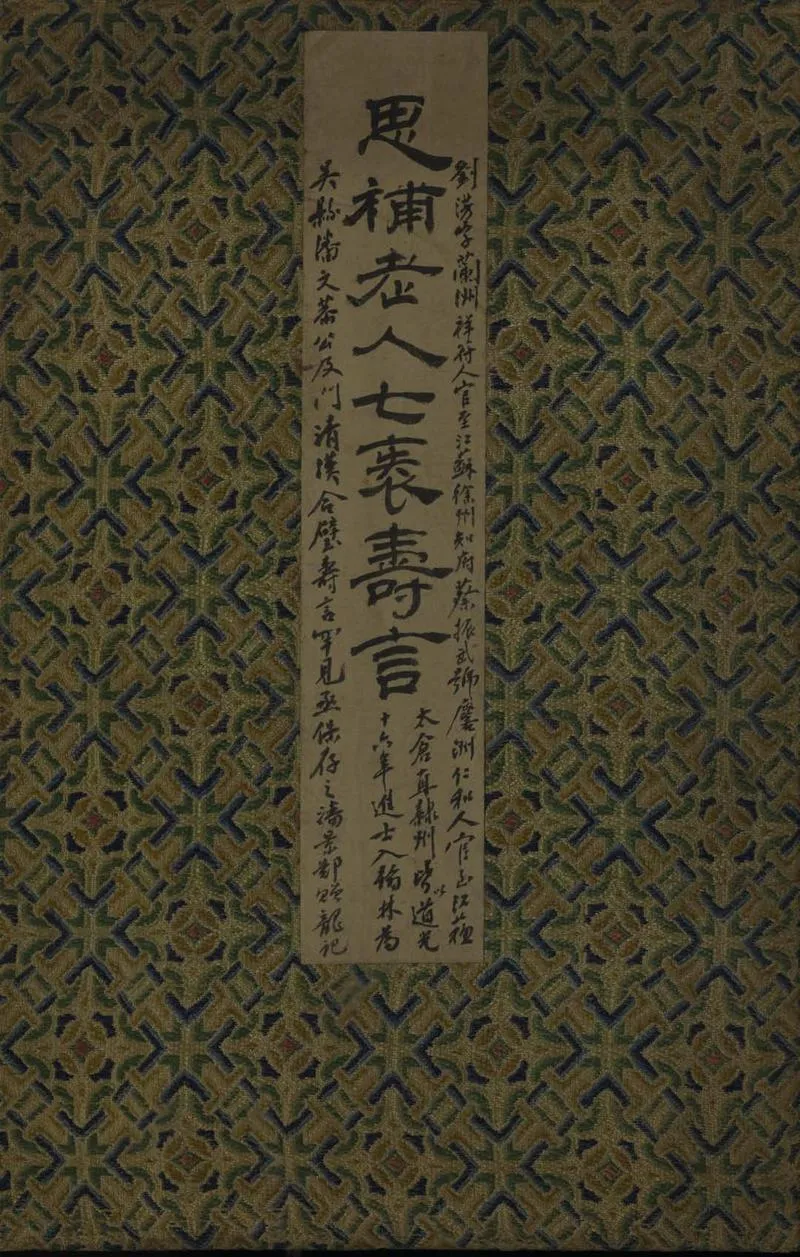 思補老人七袠壽言
劉字蘭洲祥符人官至江蘇徐州知府蔡振武號麐洲仁和人官至江蘇
太倉直隸州皆以道光
十六年進士入翰林為
吳縣潘文恭公及門清漢合璧壽言罕見亟保存之潘景鄭龍記